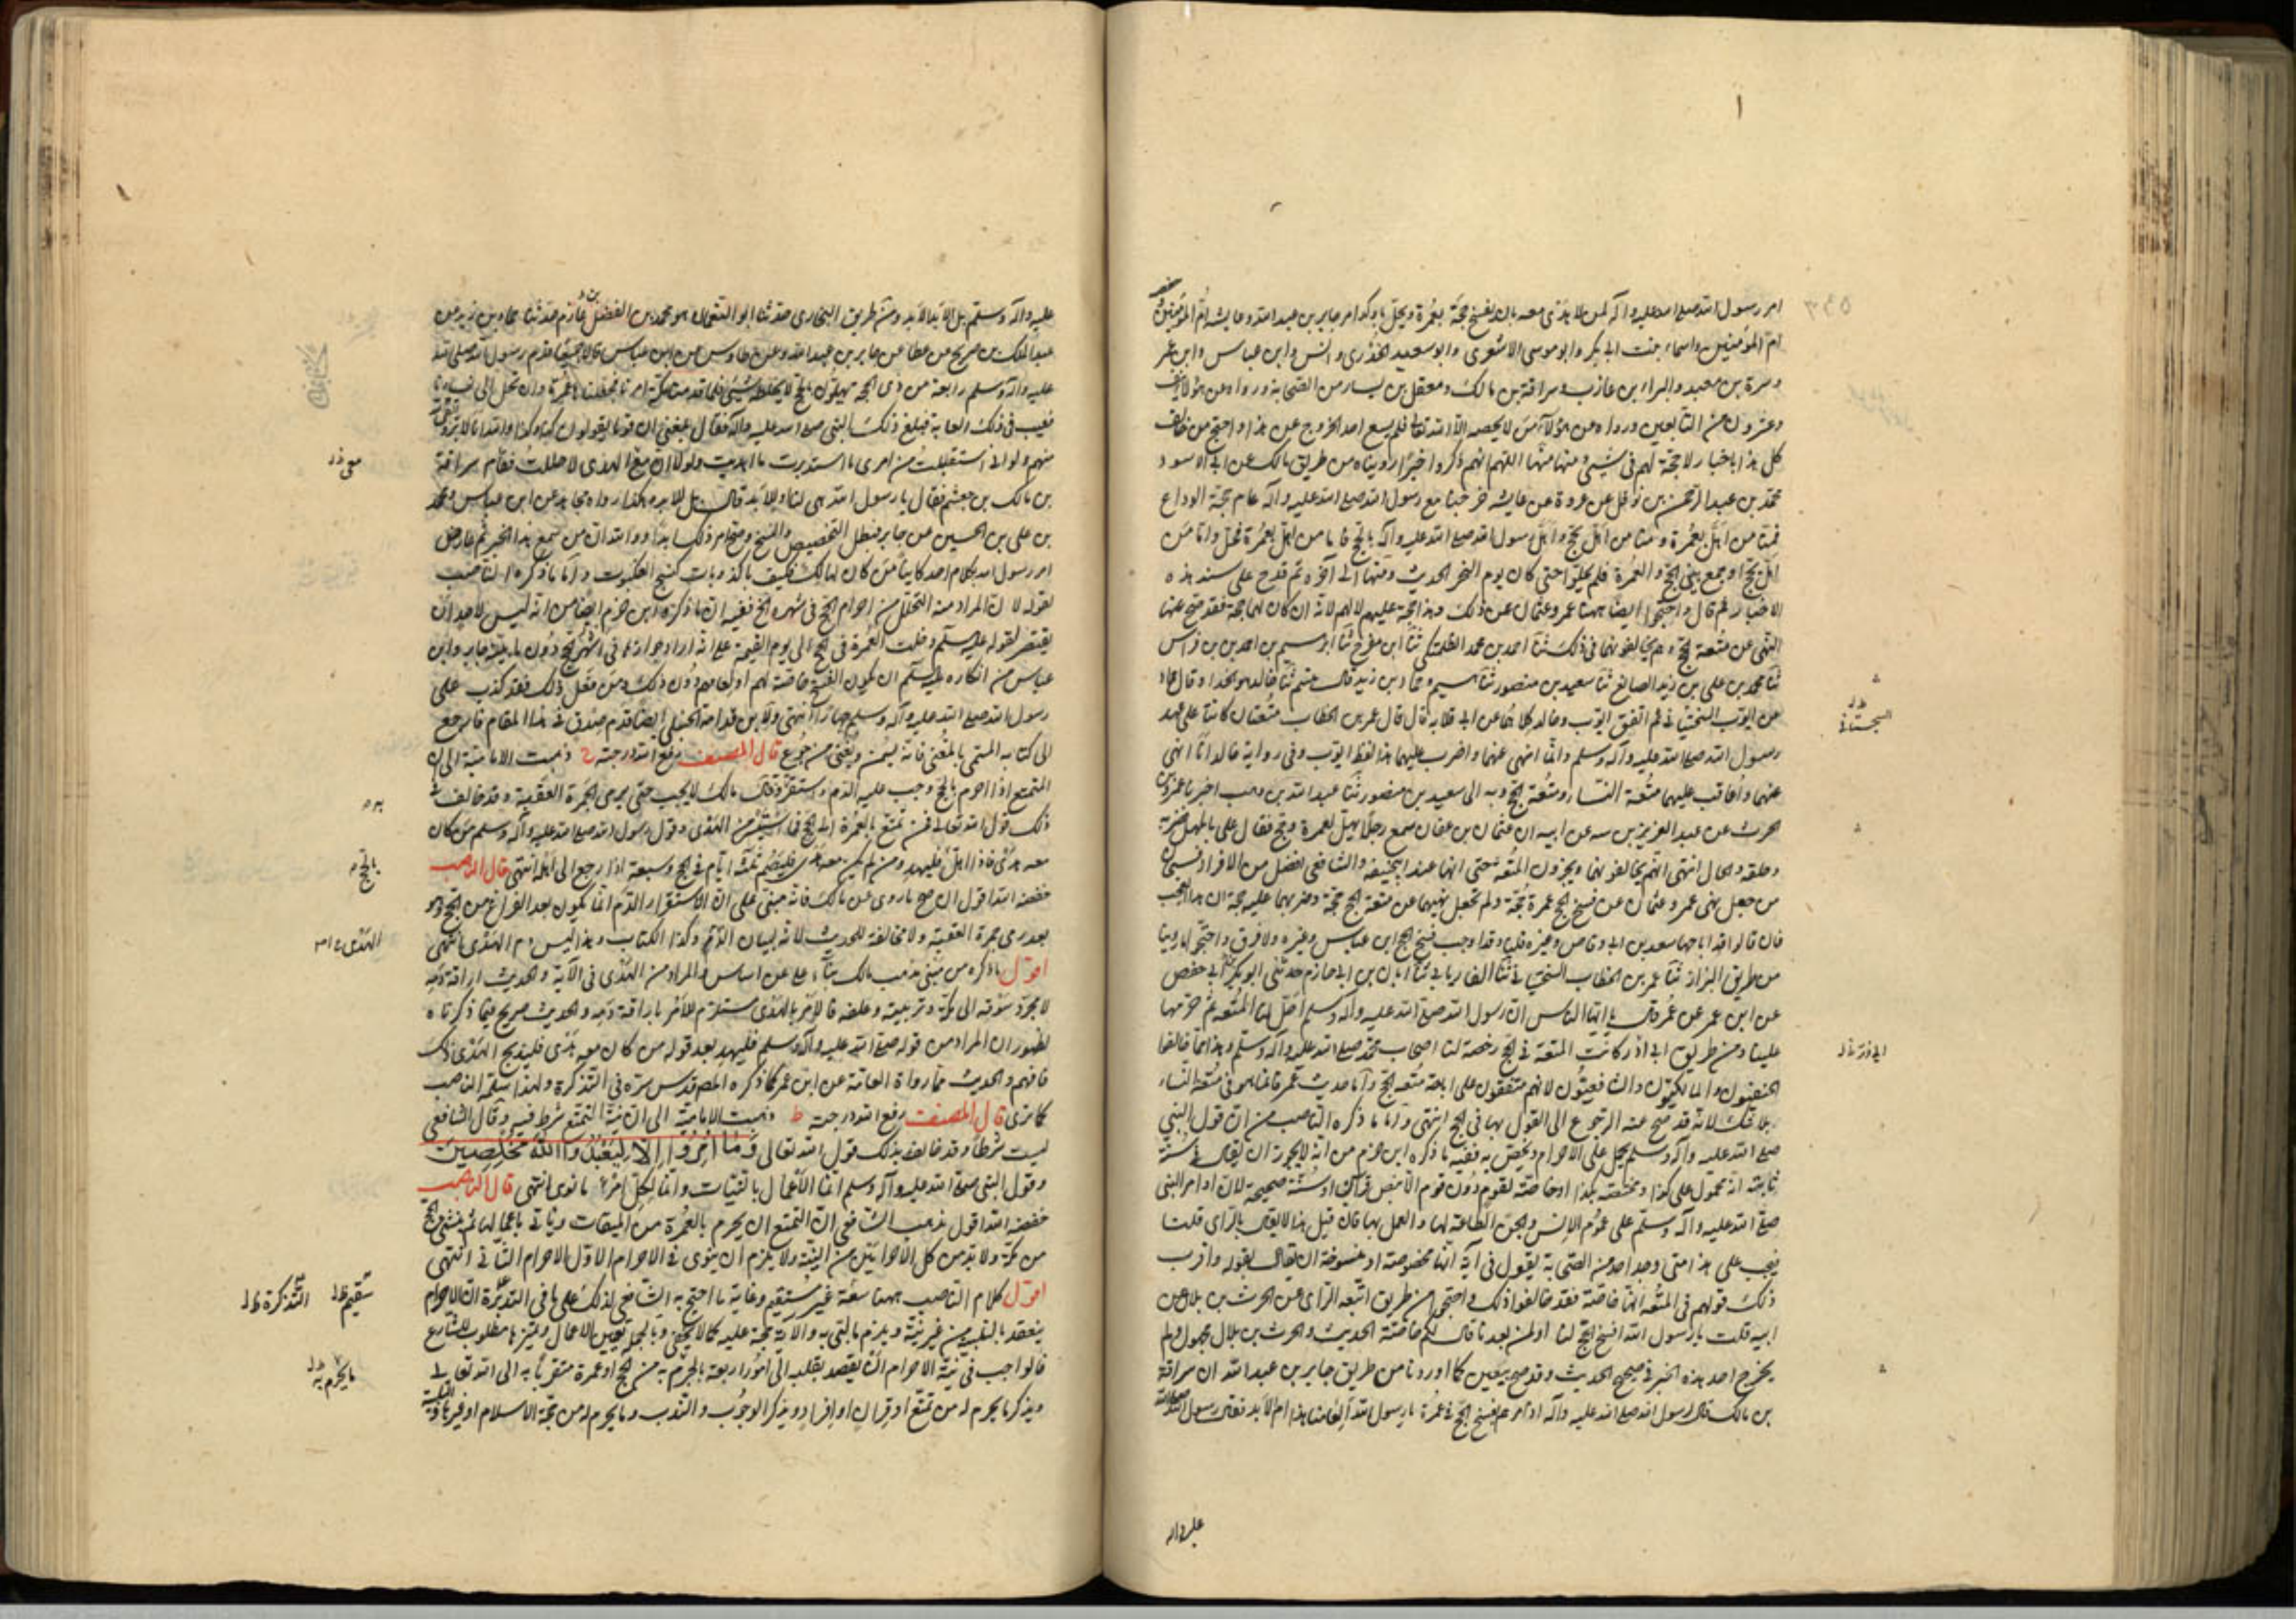 امر رسول الله صلى الله عليه وآله لمن لا هدى معه بان يفسخ حجة بعمرة ويحل باوكد امر جابر بن عبد الله وعايشه ام المؤمنين
ام المؤمنين واسماء بنت ابى بكر وابو موسى الاشعرى وابو سعيد الخدرى وانس وابن عباس وابن عمر
وسبرة بن معبد والبراء بن عازب وسراقة بن مالك ومعقل بن يسار من الصحابة ورواه عن هؤلاء نيف
وعشرون من التابعين ورواه عن هؤلاء من لا يحصيه الا الله تعالى فلم يسع احد الخروج عن هذا واحتج من خالف
كل هذا باخبار لا حجة لهم فى شىء منها اللهم انهم ذكروا خبرا رويناه من طريق مالك عن ابى الاسود
محمد بن عبد الرحمن بن نوفل عن عروة عن عايشه خرجنا مع رسول الله صلى الله عليه وآله عام حجة الوداع
فمنا من اهل بعمرة ومنا من اهل بحج واهل رسول الله صلى الله عليه وآله بالحج فاما من اهل بعمرة فحل واما من
اهل بحج او جمع بين الحج والعمرة فلم يحلوا حتى كان يوم النحر الحديث ثم قدح على سند هذه
الاخبار ثم قال واحتجوا ايضا بنهى عمر وعثمان عن ذلك وهذا حجة عليهم لا لهم لانه ان كان لهما حجة فقد صح عنها
النهى عن متعة الحج وهم يخالفونهما فى ذلك ثنا احمد بن محمد الطلمنكى ثنا ابن مفرج ثنا ابراهيم بن احمد بن فراس
ثنا محمد بن على بن زيد الصائغ ثنا سعيد بن منصور ثنا هشيم وحماد بن زيد قال هشيم ثنا خالد هو الحذا وقال حماد
عن ايوب السختيانى ثم اتفق ايوب وخالد كلاهما عن ابى قلابه قال قال عمر بن الخطاب متعتان كانتا على عهد
رسول الله صلى الله عليه وآله وسلم وانا انهى عنهما واضرب عليهما هذا لفظ ايوب وفى رواية خالد انا انهى
عنهما واعاقب عليهما متعة النساء ومتعة الحج وبه الى سعيد بن منصور ثنا عبد الله بن وهب اخبرنى عمرو بن
الحرث عن عبد العزيز بن نبيه عن ابيه ان عثمان بن عفان سمع رجلا يهل بعمرة وحج فقال على بالمهل فضربه
وحلقه والحال انتهى انهم يخالفونهما ويجيزون المتعة حتى انها عند ابى حنيفه والشافعى افضل من الافراد فسبحان
من جعل نهى عمر وعثمان عن فسخ الحج عمرة حجة ولم تجعل نهيهما عن متعة الحج حجة وضربهما عليه حجة ان هذا لعجب
فان قالوا قد اباحها سعد بن ابى وقاص وغيره قلنا وقد اوجب فسخ الحج ابن عباس وغيره ولا فرق واحتجوا بما روينا
من طريق البزاز ثنا عمر بن الخطاب السختيانى ثنا الفاريابى ثنا ابان بن ابى حازم حدثنى ابو بكر بن ابى حفص
عن ابن عمر عن عمر قال يا ايها الناس ان رسول الله صلى الله عليه وآله وسلم احل لنا المتعه ثم حرمها
علينا ومن طريق ابى ذر كانت المتعة فى الحج رخصة لنا اصحاب محمد صلى الله عليه وآله وسلم وهذا مما خالفها
الحنفيون والمالكيون والشافعيون لانهم متفقون على اباحة متعة الحج واما حديث عمر فانما هو فى متعة النساء
بلا شك لانه قد صح عنه الرجوع الى القول بها فى الحج انتهى واما ما ذكره الناصب من ان قول النبى
صلى الله عليه وآله وسلم يحمل على الاحرام ويختص به ففيه ما ذكره ابن حزم من انه لا يجوز ان يقال فى سنة
ثابتة انه محمول على كذا ومختصه بكذا او خاصة لقوم دون قوم الا بنص قرآن او سنة صحيحة لان اوامر النبى
صلى الله عليه وآله وسلم على عموم الانس والجن الطاعة لها والعمل بها فان قيل هذا لا يقال بالراى قلت
فيجب على هذا متى وجد احد من الصحابة يقول فى آية انها مخصوصة او منسوخة ان يقال بقوله واقرب
ذلك قولهم فى المتعه انها خاصة فقد خالفوا ذلك واحتجوا من طريق ربيعه الراى عن الحرث بن بلال عن
ابيه قلت يا رسول الله افسخ الحج لنا او لمن بعدنا قال لكم خاصة الحديث والحرث بن بلال مجهول ولم
يخرج احد هذه الخبر فى صحيح الحديث وقد صح بيقين كما اوردنا من طريق جابر بن عبد الله ان سراقة
بن مالك قال لرسول الله صلى الله عليه وآله اذ امرهم بفسخ الحج فى عمرة يا رسول الله العامنا هذا ام للابد فقال رسول الله صلى الله
عليه وآله
السجستانى
ابى ذر
عليه وآله وسلم بل لابد الابد ومن طريق البخارى حدثنا ابو النعمان هو محمد بن الفضل عارم حدثنا حماد بن زيد عن
عبد الملك بن جريج عن عطا عن جابر بن عبد الله وعن طاوس عن ابن عباس قالا جميعا قدم رسول الله صلى الله
عليه وآله وسلم رابعة من ذى الحجة مهلون بالحج لا يخلطه شىء فلما قدمنا مكة امرنا فجعلناها عمرة وان نحل الى نسائنا
ففشت فى ذلك القالة فبلغ ذلك النبى صلى الله عليه وآله فقال بلغنى ان قوما يقولون كذا وكذا والله انا لابر واتقى
منهم ولو انى استقبلت من امرى ما استدبرت ما اهديت ولولا ان معى الهدى لاحللت فقام سراقة
بن مالك بن جعشم فقال يا رسول الله هى لنا او للابد قال بل للابد هكذا رواه مجاهد عن ابن عباس ومحمد
بن على بن الحسين عن جابر فبطل التخصيص والنسخ والله ان من سمع هذا الخبر ثم عارض
امر رسول الله بكلام احد كاينا من كان لهالك فكيف باكذوبات كنسج العنكبوت واما ما ذكره الناصب
بقوله لان المراد منه التحلل من احرام الحج فى شهره الخ ففيه ان ما ذكره ابن حزم ايضا من انه ليس لاحد ان
يقتصر بقوله عليه السلم دخلت العمرة فى الحج الى يوم القيمة على انه اراد جوازها فى اشهر الحج دون ما بينه جابر وابن
عباس من انكاره عليه السلم ان يكون الفسخ خاصة لهم او لعامهم دون ذلك ومن فعل ذلك فقد كذب على
رسول الله صلى الله عليه وآله وسلم جهارا انتهى ولابن قدامة الحنبلى ايضا قدم صدق فى هذا المقام فارجع
الى كتابه المسمى بالمغنى فانه يسمن ويغنى من جوع قال المصنف رفع الله درجته ذهبت الامامية الى ان
المتمتع اذا احرم بالحج وجب عليه الدم واستقر وقال مالك لا يجب حتى يرمى الجمرة العقبة وقد خالف فى
ذلك قول الله تعالى فمن تمتع بالعمرة الى الحج فما استيسر من الهدى وقول رسول الله صلى الله عليه وآله وسلم من كان
معه هدى فاذا اهل فليهد ومن لم يكن معه هدى فليصم ثلثة ايام فى الحج وسبعة اذا رجع الى اهله انتهى قال الناصب
خفضه الله اقول ان صح ما روى عن مالك فانه مبنى على ان الاستقرار الدم انما يكون بعد الفراغ من الحج وهو
بعد رمى جمرة العقبة ولا مخالفة للحديث لانه لبيان الدم وكذا الكتاب وهذا ليس دم الهدى انتهى
اقول ما ذكره من مبنى مذهب مالك بناء على غير اساس والمراد من الهدى فى الآية والحديث اراقة دمه
لا مجرد سوقه الى مكة وتربيته وعلفه فالامر بالهدى مستلزم للامر باراقة دمه والحديث صريح فيما ذكرناه
لظهور ان المراد من قوله صلى الله عليه وآله وسلم فليهد بعد قوله من كان معه هدى فليذبح الهدى ذلك
فافهم والحديث مما رواه العامة عن ابن عمر كما ذكره المصـ قدس سره فى التذكرة ولهذا سلمه الناصب
كما ترى قال المصنف رفع الله درجته ط ذهبت الامامية الى ان نية التمتع شرط فيه وقال الشافعى
ليست شرطا وقد خالف بذلك قول الله تعالى وَمَا أُمِرُوا إِلَّا لِيَعْبُدُوا اللَّهَ مُخْلِصِينَ
وقول النبى صلى الله عليه وآله وسلم انما الاعمال بالنيات وانما لكل امرئ ما نوى انتهى قال الناصب
خفضه الله اقول مذهب الشافعى ان التمتع ان يحرم بالعمرة من الميقات وياتى باعمالها ثم ينشئ الحج
من مكة ولا بد من كل الاحرامين من النية ولا يلزم ان ينوى فى الاحرام الاول الاحرام الثانى انتهى
اقول كلام الناصب ههنا سعة غير مستقيم وغاية ما احتج به الشافعى لذلك على ما فى التذكرة ان الاحرام
ينعقد بالتلبية من غير نية ويلزم ما لبى به والآية حجة عليه كما لا يخفى وبالجملة تعيين الاعمال وتميزها مطلوب للشارع
فالواجب فى نية الاحرام ان يقصد بقلبه الى امور اربعة ما يحرم به من حج او عمرة متقربا به الى الله تعالى
ويذكر ما يحرم له من تمتع او قران او افراد ويذكر الوجوب والندب وما يحرم له من حجة الاسلام او غيرها
معى
به
بالحج
الهدى
سقيم ظ التذكرة ظ
ما يحرم به